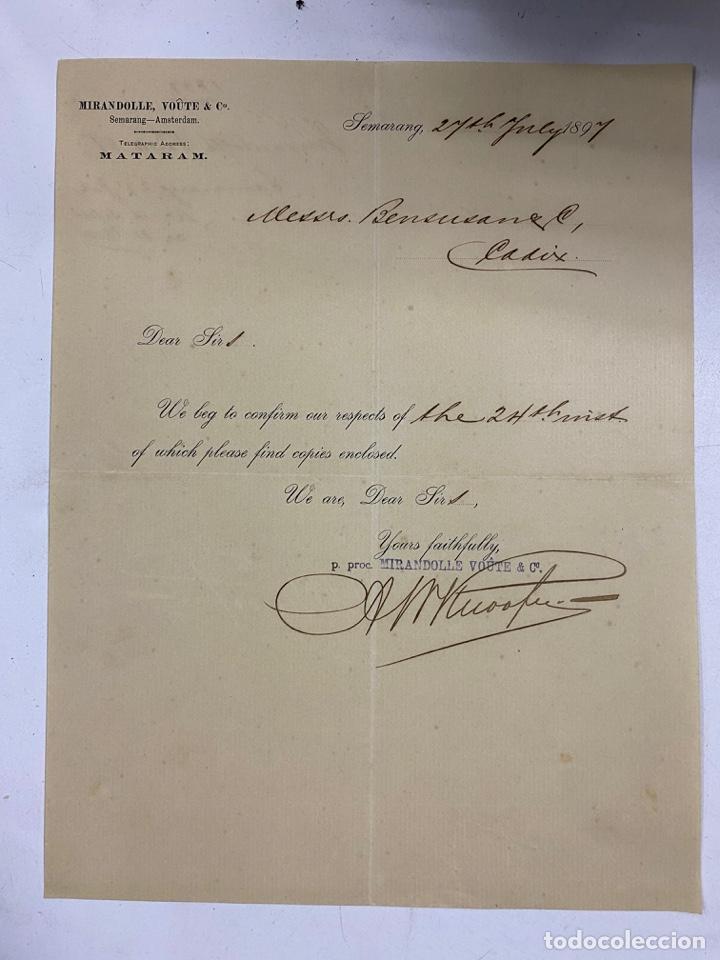 MIRANDOLLE, VOÛTE & Co.
Semarang—Amsterdam.
TELEGRAPHIC ADDRESS:
MATARAM.
Semarang, 27th July 1897
Messrs. Bensusan & C,
Cadix.
Dear Sirs.
We beg to confirm our respects of the 24th inst
of which please find copies enclosed.
We are, Dear Sirs,
Yours faithfully,
p. proc. MIRANDOLLE VOÛTE & Co.
todocoleccion
todocoleccion.net